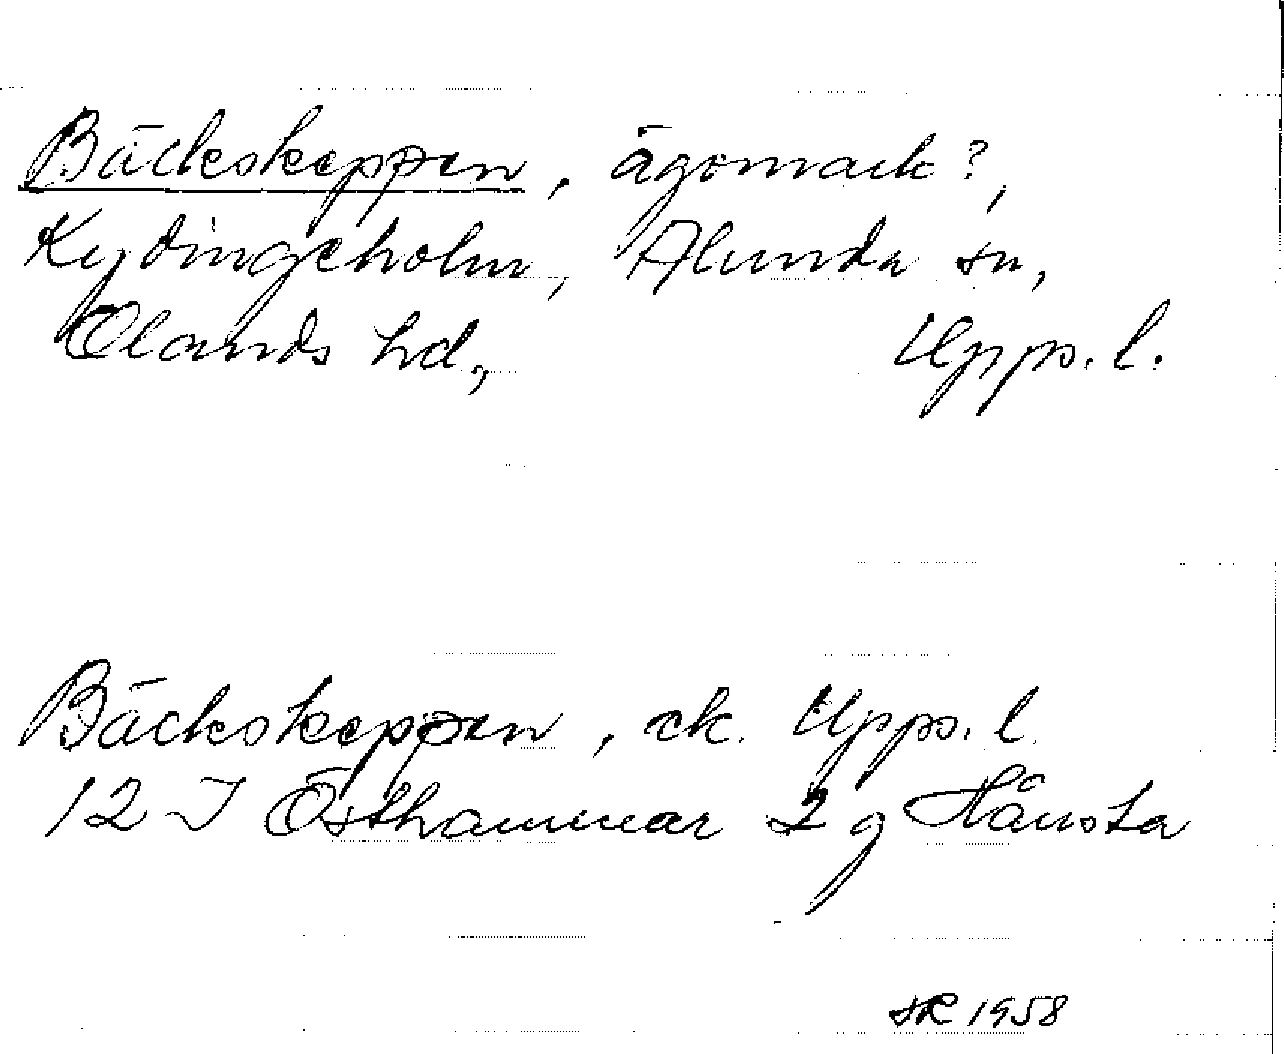 Bäckskeppen, ägomark?,
Kydingeholm, Alunda sn,
Olands hd., Upps. l.
Bäckskeppen, ek. Upps. l.
12 I Östhammar 2 g Hånsta
1958